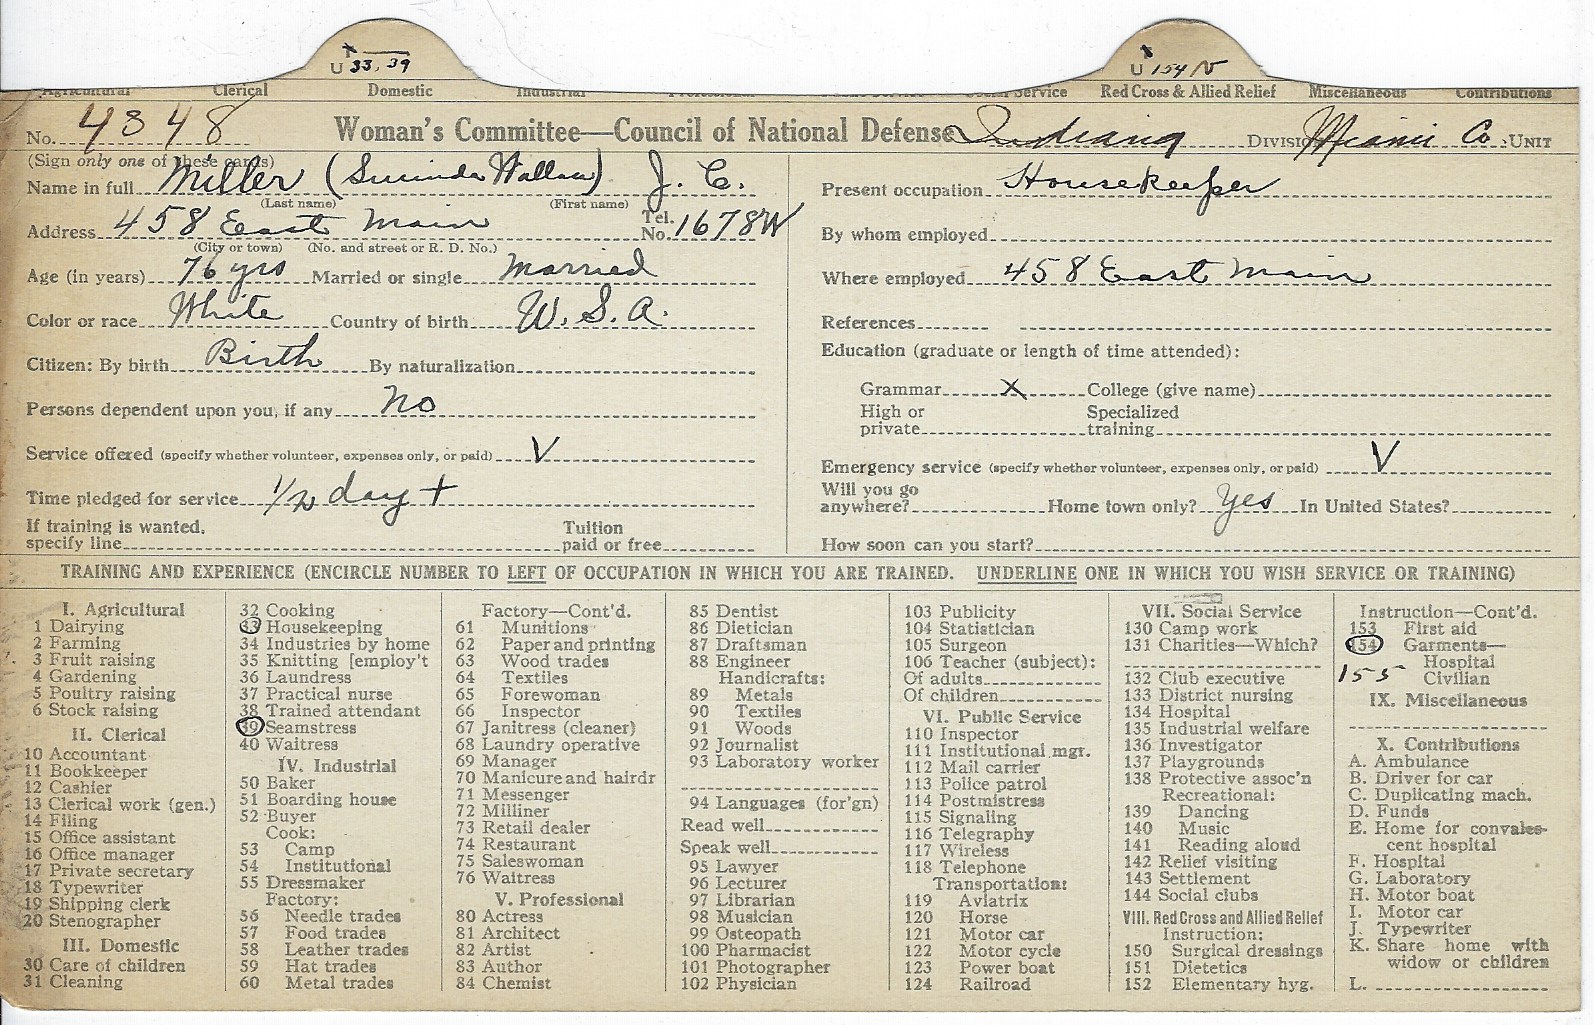 U 33, 39
U 154 V
Agricultural Clerical Domestic Industrial Professional Social Service Red Cross & Allied Relief Miscellaneous Contributions
No. 4348 Woman's Committee—Council of National Defense Indiana Division Miami Co. Unit
(Sign only one of these cards)
Name in full Miller (Lucinda Wallace) J. C.
(Last name) (First name)
Address 458 East Main Tel. No. 1678W
(City or town) (No. and street or R. D. No.)
Age (in years) 76 yrs Married or single Married
Color or race White Country of birth U. S. A.
Citizen: By birth Birth By naturalization
Persons dependent upon you, if any no
Service offered (specify whether volunteer, expenses only, or paid) V
Time pledged for service 1/2 day +
If training is wanted, specify line Tuition paid or free
Present occupation Housekeeper
By whom employed
Where employed 458 East Main
References
Education (graduate or length of time attended):
Grammar X College (give name)
High or private Specialized training
Emergency service (specify whether volunteer, expenses only, or paid) V
Will you go anywhere? Home town only? Yes In United States?
How soon can you start?
TRAINING AND EXPERIENCE (ENCIRCLE NUMBER TO LEFT OF OCCUPATION IN WHICH YOU ARE TRAINED. UNDERLINE ONE IN WHICH YOU WISH SERVICE OR TRAINING)
I. Agricultural
1 Dairying
2 Farming
3 Fruit raising
4 Gardening
5 Poultry raising
6 Stock raising
II. Clerical
10 Accountant
11 Bookkeeper
12 Cashier
13 Clerical work (gen.)
14 Filing
15 Office assistant
16 Office manager
17 Private secretary
18 Typewriter
19 Shipping clerk
20 Stenographer
III. Domestic
30 Care of children
31 Cleaning
32 Cooking
33 Housekeeping
34 Industries by home
35 Knitting [employ't
36 Laundress
37 Practical nurse
38 Trained attendant
39 Seamstress
40 Waitress
IV. Industrial
50 Baker
51 Boarding house
52 Buyer
Cook:
53 Camp
54 Institutional
55 Dressmaker
Factory:
56 Needle trades
57 Food trades
58 Leather trades
59 Hat trades
60 Metal trades
Factory—Cont'd.
61 Munitions
62 Paper and printing
63 Wood trades
64 Textiles
65 Forewoman
66 Inspector
67 Janitress (cleaner)
68 Laundry operative
69 Manager
70 Manicure and hairdr
71 Messenger
72 Milliner
73 Retail dealer
74 Restaurant
75 Saleswoman
76 Waitress
V. Professional
80 Actress
81 Architect
82 Artist
83 Author
84 Chemist
85 Dentist
86 Dietician
87 Draftsman
88 Engineer
Handicrafts:
89 Metals
90 Textiles
91 Woods
92 Journalist
93 Laboratory worker
94 Languages (for'gn)
Read well
Speak well
95 Lawyer
96 Lecturer
97 Librarian
98 Musician
99 Osteopath
100 Pharmacist
101 Photographer
102 Physician
103 Publicity
104 Statistician
105 Surgeon
106 Teacher (subject):
Of adults
Of children
VI. Public Service
110 Inspector
111 Institutional mgr.
112 Mail carrier
113 Police patrol
114 Postmistress
115 Signaling
116 Telegraphy
117 Wireless
118 Telephone
Transportation:
119 Aviatrix
120 Horse
121 Motor car
122 Motor cycle
123 Power boat
124 Railroad
VII. Social Service
130 Camp work
131 Charities—Which?
132 Club executive
133 District nursing
134 Hospital
135 Industrial welfare
136 Investigator
137 Playgrounds
138 Protective assoc'n
Recreational:
139 Dancing
140 Music
141 Reading aloud
142 Relief visiting
143 Settlement
144 Social clubs
VIII. Red Cross and Allied Relief
Instruction:
150 Surgical dressings
151 Dietetics
152 Elementary hyg.
Instruction—Cont'd.
153 First aid
154 Garments—
Hospital
155 Civilian
IX. Miscellaneous
X. Contributions
A. Ambulance
B. Driver for car
C. Duplicating mach.
D. Funds
E. Home for convales-
cent hospital
F. Hospital
G. Laboratory
H. Motor boat
I. Motor car
J. Typewriter
K. Share home with
widow or children
L.